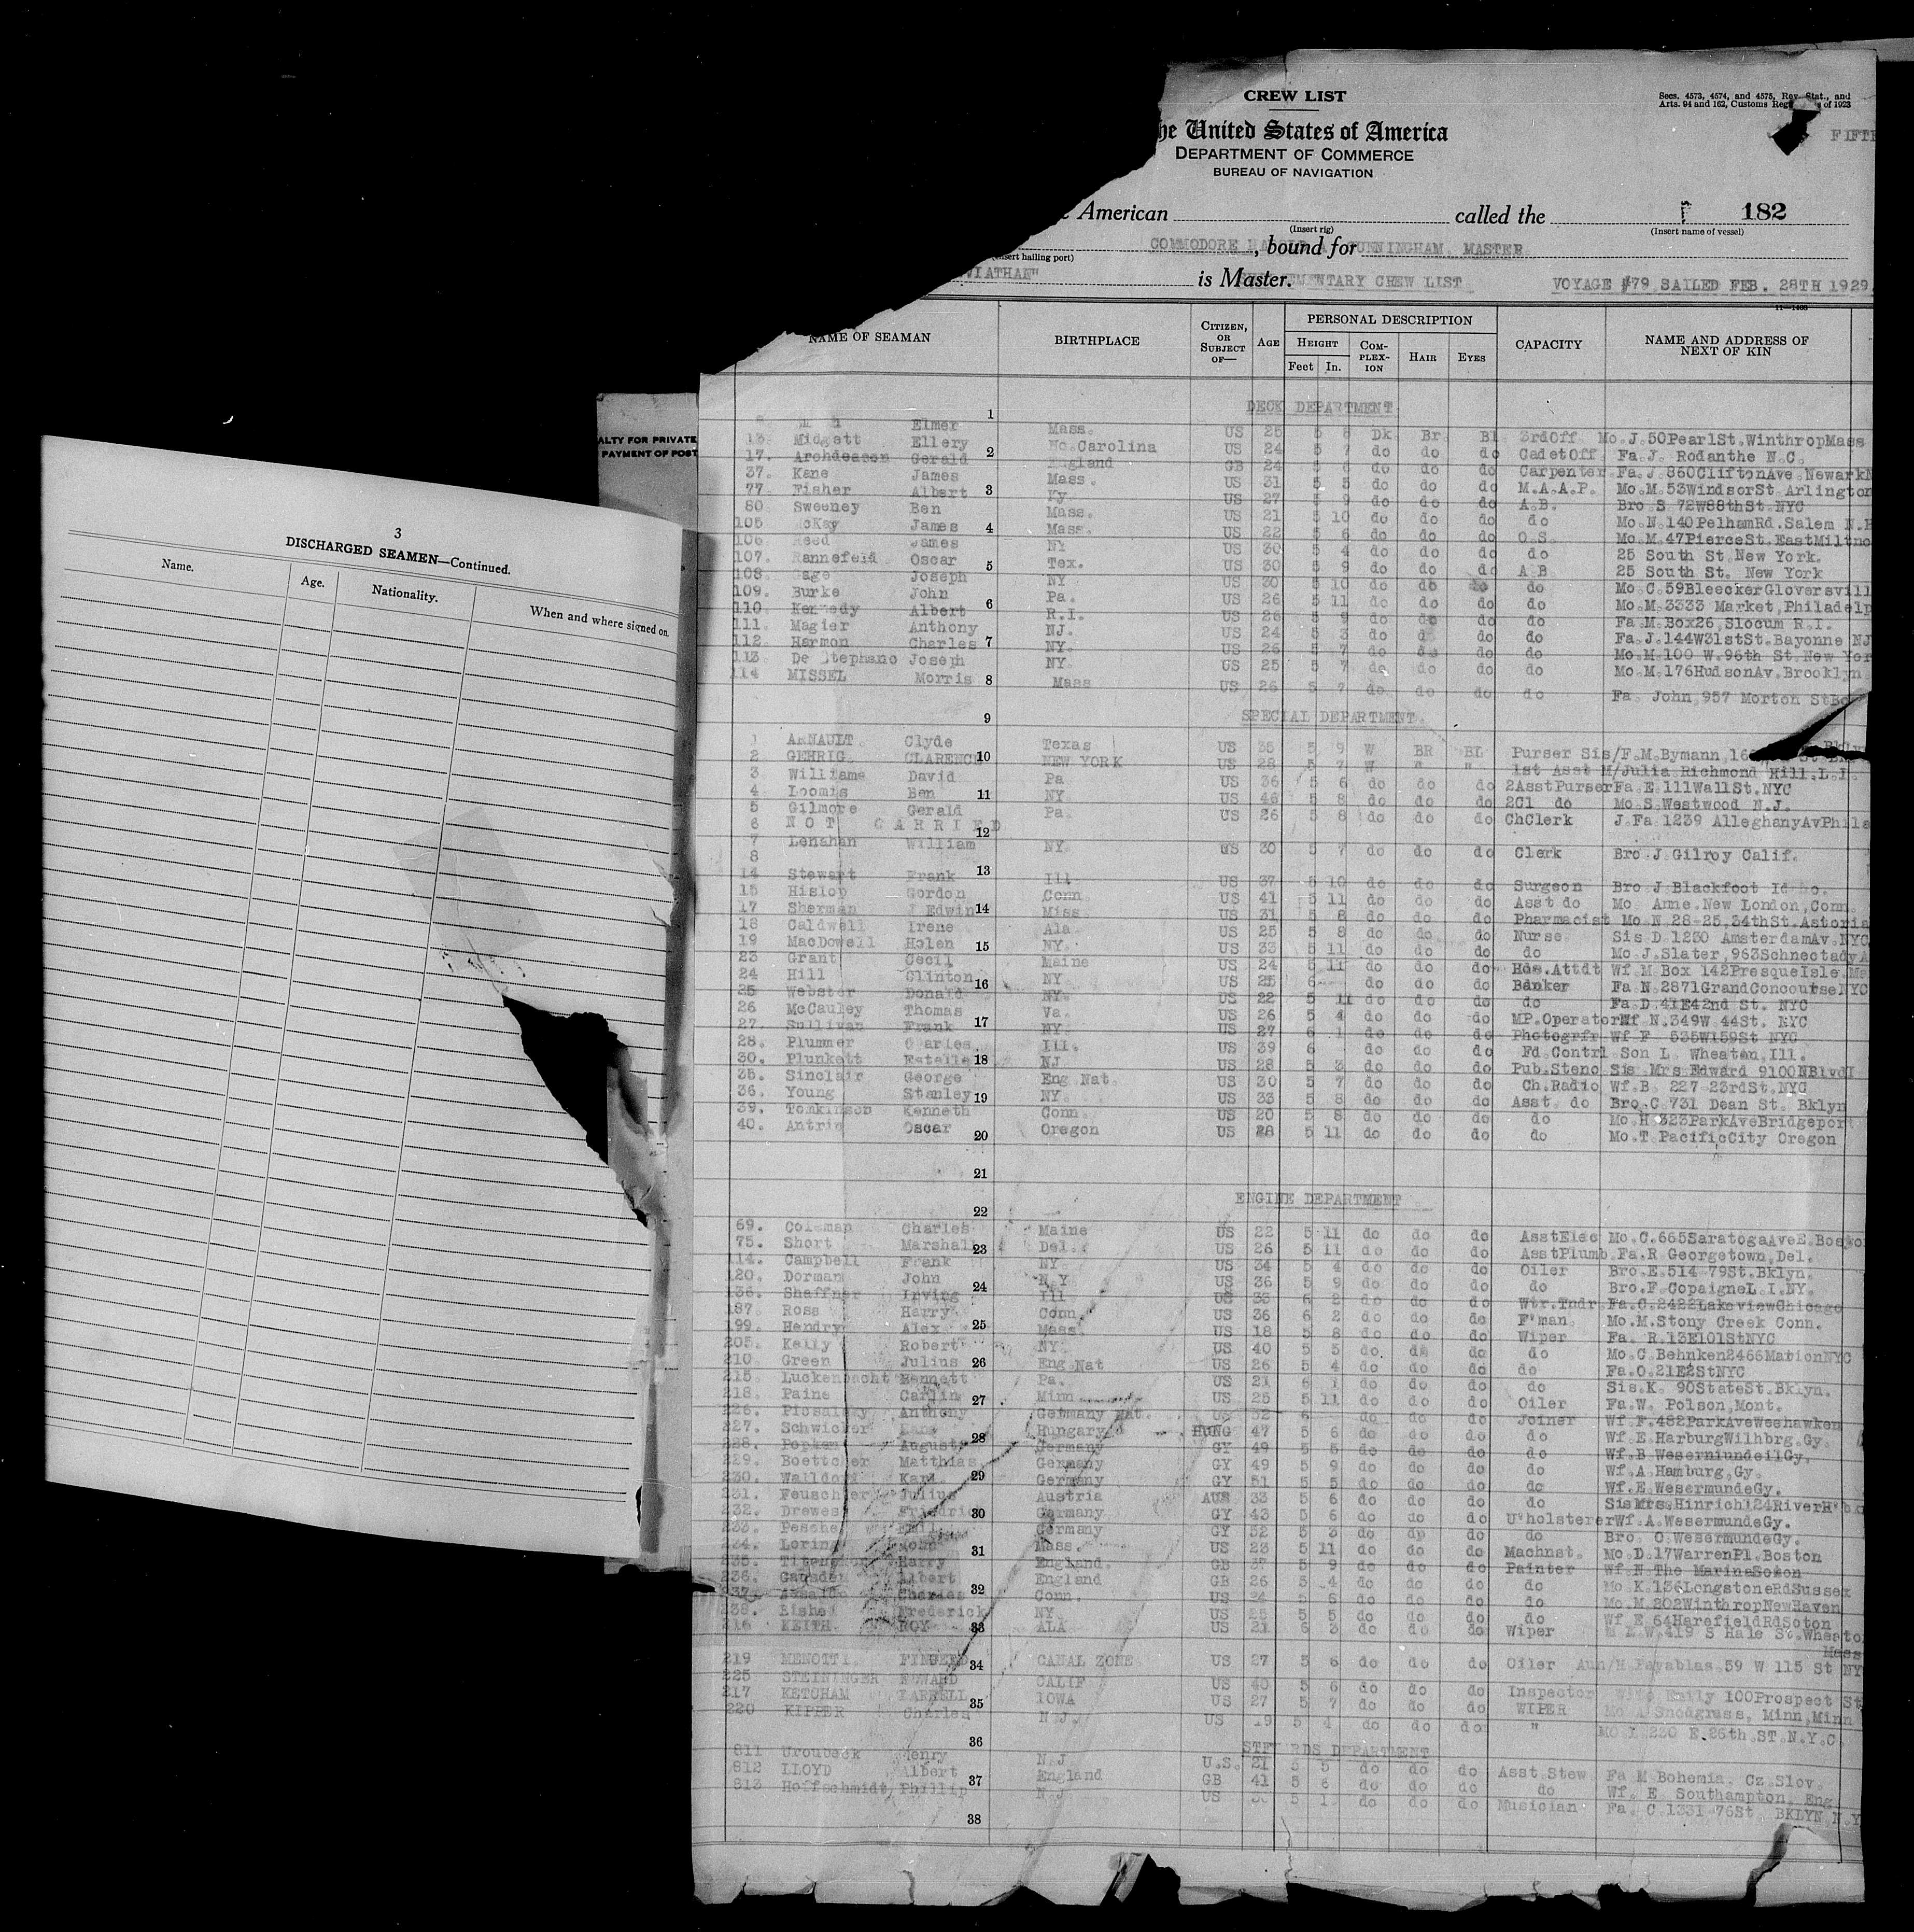 ALTY FOR PRIVATE
PAYMENT OF POST
3
DISCHARGED SEAMEN—Continued.
Name. Age. Nationality. When and where signed on.
CREW LIST
Secs. 4573, 4574, and 4575, Rev. Stat., and
Arts. 94 and 162, Customs of 1923
FIFTH
he United States of America
DEPARTMENT OF COMMERCE
BUREAU OF NAVIGATION
American called the 182
(Insert rig) (Insert name of vessel)
COMMODORE CUNNINGHAM. MASTER
, bound for
(Insert hailing port)
VIATHAN" is Master. MENTARY CREW LIST VOYAGE #79 SAILED FEB. 28TH 1929.
11—1468
NAME OF SEAMAN BIRTHPLACE CITIZEN, OR SUBJECT OF— AGE PERSONAL DESCRIPTION CAPACITY NAME AND ADDRESS OF NEXT OF KIN
HEIGHT COM-PLEX-ION HAIR EYES
Feet In.
1 DECK DEPARTMENT
Elmer Mass. US 25 5 8 Dk Br Bl 3rdOff Mo.J.50PearlSt.WinthropMass
13. Midgett Ellery No.Carolina US 24 5 7 do do do CadetOff Fa.J. Rodanthe N.C.
17. Archdeacon Gerald 2 England GB 24 5 6 do do do Carpenter Fa.J.860CliftonAve.NewarkN
37. Kane James Mass. US 31 5 5 do do do M.A.A.P. Mo.M.53WindsorSt.Arlington
77. Fisher Albert 3 Ky. US 27 5 9 do do do A.B. Bro.S 72W88thSt.NYC
80. Sweeney Ben Mass. US 21 5 10 do do do do Mo.N.140PelhamRd.Salem N.H
105 McKay James 4 Mass. US 22 5 6 do do do O.S. Mo.M.47PierceSt.EastMiltno
106. Reed James NY US 30 5 4 do do do do 25 South St.New York.
107. Rannefeld Oscar 5 Tex. US 30 5 9 do do do A B 25 South St. New York
108. Gage Joseph NY US 30 5 10 do do do do Mo.C.59BleeckerGloversvill
109. Burke John 6 Pa. US 26 5 11 do do do do Mo.M.3333 Market,Philadelp
110. Kennedy Albert R.I. US 25 5 9 do do do do Fa.M.Box26,Slocum R.I.
111. Magier Anthony NJ. US 24 5 3 do do do do Fa.J.144W31stSt.Bayonne NJ
112. Harmon Charles 7 NY. US 26 5 7 do do do do Mo.M.100 W.96th St.New Yor
113 De Stephano Joseph NY. US 25 5 7 do do do do Mo.M.176HudsonAv.Brooklyn
114 MISSEL Morris 8 Mass US 26 5 7 do do do do Fa. John,957 Morton StBo
9 SPECIAL DEPARTMENT.
1 ARNAULT Clyde Texas US 35 5 9 W BR BL Purser Sis/F.M.Bymann
2 GEHRIG CLARENCE 10 NEW YORK US 28 5 7 W " " 1st Asst M/Julia Richmond Hill.L.I.
3 Williams David Pa US 36 5 6 do do do 2AsstPurser Fa.E.111WallSt.NYC
4 Loomis Ben 11 NY US 46 5 8 do do do 2Cl do Mo.S.Westwood N.J.
5 Gilmore Gerald Pa. US 26 5 8 do do do ChClerk J.Fa.1239 AlleghanyAvPhila
6 NOT CARRIED 12
7 Lenahan William NY. US 30 5 7 do do do Clerk Bro.J.Gilroy Calif.
8 13
14 Stewart Frank Ill US 37 5 10 do do do Surgeon Bro J.Blackfoot
15 Hislop Gordon Conn. US 41 5 11 do do do Asst do Mo. Anne.New London,Conn.
17 Sherman J Edwin 14 Miss US 31 5 8 do do do Pharmacist Mo.N.28-25.34thSt.Astoria
18 Caldwell Irene Ala. US 25 5 8 do do do Nurse Sis.D.1230 AmsterdamAv.NYC
19 MacDowell Helen 15 NY. US 33 5 11 do do do do Mo J.Slater,963SchnectadyA
23 Grant Cecil Maine US 24 5 11 do do do Hos.Attdt Wf.M.Box 142PresqueIsle.Me
24 Hill Clinton 16 NY US 25 6 do do do Banker Fa.N.2871GrandConcourseNYC
25 Webster Donald NY. US 22 5 11 do do do do Fa.D.41E42nd St. NYC
26 McCauley Thomas 17 Va. US 26 5 4 do do do MP.Operator Wf N.349W 44St. NYC
27. Sullivan Frank NY. US 27 6 1 do do do Photogrfr Wf.F 535W159St NYC
28. Plummer Charles Ill. US 39 6 do do do Fd Contrl Son L. Wheaton,Ill.
30. Plunkett Estelle 18 NJ US 28 5 3 do do do Pub.Steno Sis Mrs Edward 9100NBlvdI
35. Sinclair George Eng Nat. US 30 5 7 do do do Ch.Radio Wf.B. 227 23rdSt.NYC
36. Young Stanley 19 NY. US 33 5 8 do do do Asst do Bro.C.731 Dean St. Bklyn
39. Tomkinson Kenneth Conn. US 20 5 8 do do do do Mo.H 323ParkAveBridgeport
40. Antrim Oscar 20 Oregon US 28 5 11 do do do do Mo.T.PacificCity Oregon
21
22 ENGINE DEPARTMENT
69. Coleman Charles Maine US 22 5 11 do do do AsstElec Mo.C.665SaratogaAveE.Boston
75. Short Marshall 23 Del. US 26 5 11 do do do AsstPlumb Fa.R Georgetown,Del.
114. Campbell Frank NY US 34 5 4 do do do Oiler Bro.E.514 79St.Bklyn.
120. Dorman John 24 N Y US 36 5 9 do do do do Bro.F.CopaigneL.I.NY.
136. Shaffner Irving Ill US 33 6 2 do do do Wtr.Tndr Fa.C.2422LakeviewChicago
187 Ross Harry Conn. US 36 6 2 do do do F'man. Mo.M.Stony Creek Conn.
199. Hendry Alex 25 Mass US 18 5 8 do do do Wiper Fa. R.13E101StNYC
205. Kelly Robert NY US 40 5 5 do do do do Mo.C.Behnken2466MarionNYC
210 Green Julius 26 Eng Nat US 26 5 4 do do do do Fa.O.21E2StNYC
215. Luckenbacht Bennett Pa. US 21 6 1 do do do do Sis.K. 90StateSt.Bklyn.
218. Paine Carlin 27 Minn US 25 5 11 do do do Oiler Fa.W. Polson,Mont.
226. Anthony Germany Nat. US 32 6 do do do Joiner Wf.F.482ParkAveWeehawken
227. Schwicker 28 Hungary HUNG 47 5 6 do do do do Wf.E.HarburgWilhbrg.Gy.
228. Popken August Germany GY 49 5 5 do do do do Wf.B.
229. Boettcher Matthias Germany GY 49 5 9 do do do do Wf.A.Hamburg,Gy.
230. Walldorf Karl 29 Germany GY 51 5 5 do do do do Wf.E.WesermundeGy.
231. Julius Austria AUS 33 5 6 do do do do SisMrs.Hinrich124River
232. Drewes Friedric 30 Germany GY 43 5 6 do do do U'holsterer Wf.A.WesermundeGy.
233. Pesche Germany GY 52 5 3 do do do do Bro. O.WesermundeGy.
234. Loring John 31 Mass. US 23 5 11 do do do Machnst. Mo.D.17WarrenPl.Boston
235. Harry England. GB 37 5 9 do do do Painter Wf.N.The MarinaSoton
236. Albert 32 England GB 26 5 4 do do do do Mo K.136LongstoneRdSussex
237. Charles Conn. US 24 5 8 do do do do Mo.M.202WinthropNewHaven
238. Frederick NY US 25 5 5 do do do do Wf.E.64HarefieldRdSoton
216 KEITH ROY 33 ALA US 21 6 3 do do do Wiper E.W.419 S Hale St.Wheato
Mass
219 MENOTTI 34 CANAL ZONE US 27 5 6 do do do Oiler Aun/H.Payablas 59 W 115 St NY
225 STEININGER EDWARD CALIF US 40 5 6 do do do Inspector Wife Emily 100Prospect St
217 KETCHAM FARRELL 35 IOWA US 27 5 7 do do do WIPER Mo A Snodgrass, Minn,Minn
220 KIPPER Charles N.J. US 19 5 4 do do do " MO.I 220 E.26th ST.N.Y.C
36 STEWARDS DEPARTMENT
811 Uroubeck Henry N.J U.S. 21 5 5 do do do Asst Stew Fa M Bohemia. Cz.Slov.
812 LLOYD Albert 37 England GB 41 5 6 do do do do Wf. E. Southampton, Eng
813 Hoffschmidt, Phillip N.J US 5 1 do do do Musician Fa. C 1331 76St BKLYN N.Y
38